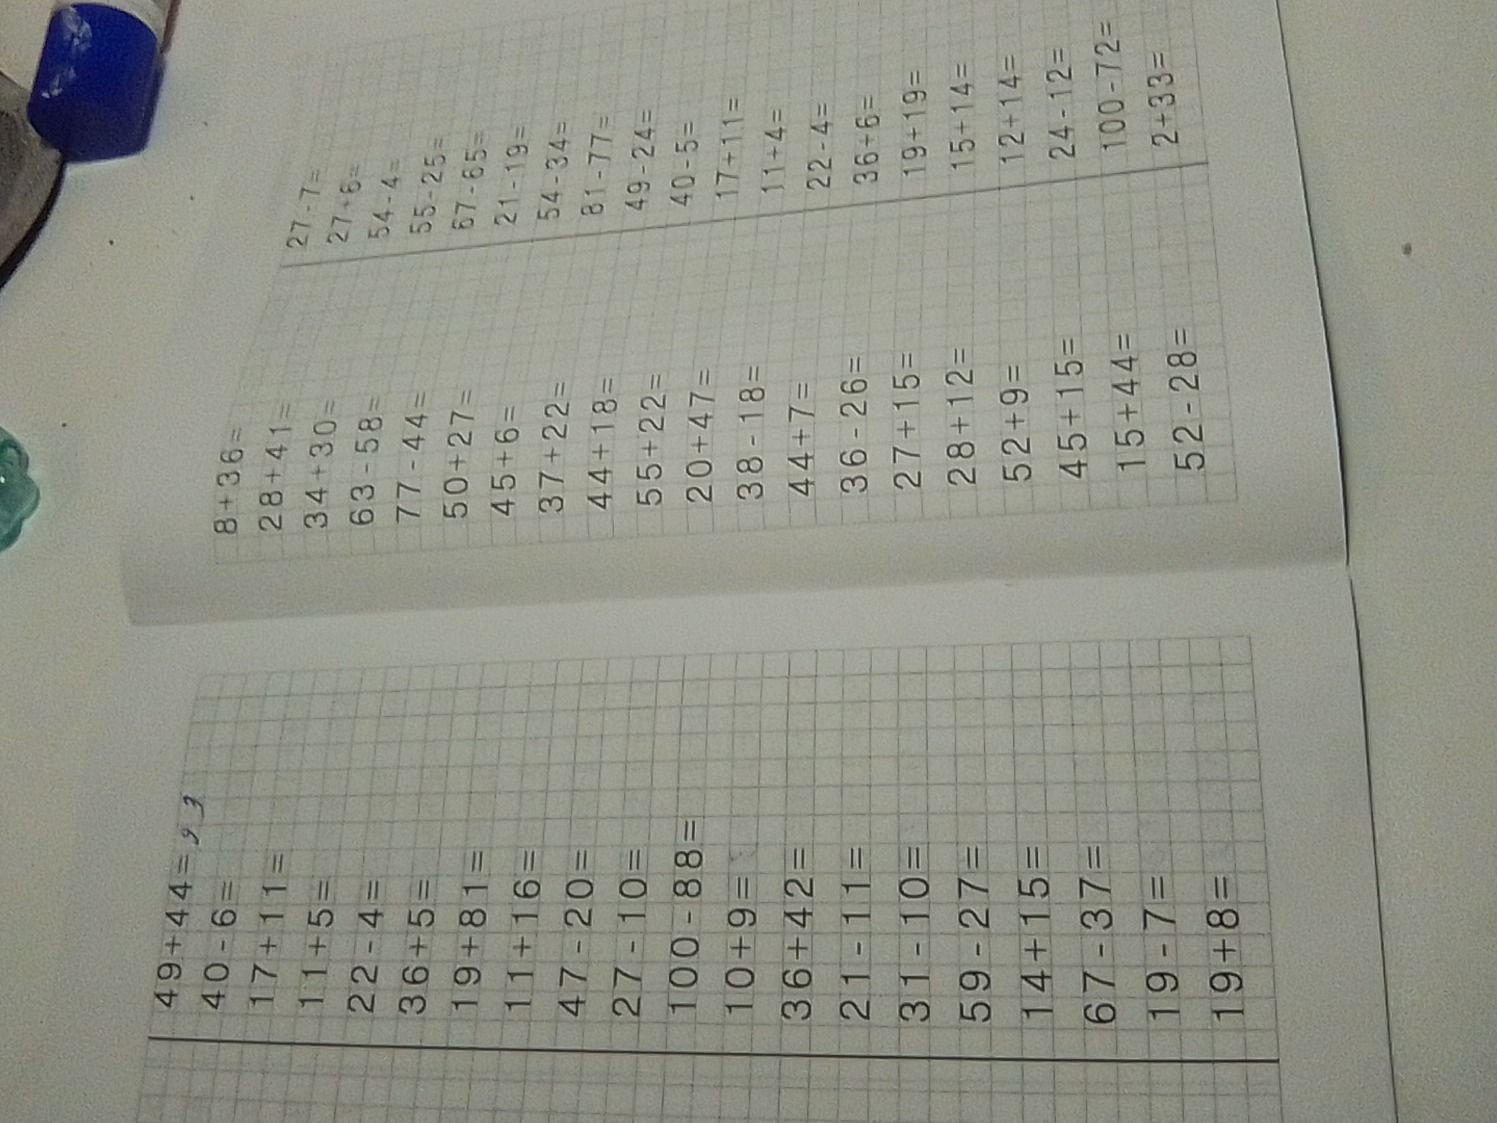 49+44=93
40-6=
17+11=
11+5=
22-4=
36+5=
19+81=
11+16=
47-20=
27-10=
100-88=
10+9=
36+42=
21-11=
31-10=
59-27=
14+15=
67-37=
19-7=
19+8=
8+36=
28+41=
34+30=
63-58=
77-44=
50+27=
45+6=
37+22=
44+18=
55+22=
20+47=
38-18=
44+7=
36-26=
27+15=
28+12=
52+9=
45+15=
15+44=
52-28=
27-7=
27+6=
54-4=
55-25=
67-65=
21-19=
54-34=
81-77=
49-24=
40-5=
17+11=
11+4=
22-4=
36+6=
19+19=
15+14=
12+14=
24-12=
100-72=
2+33=